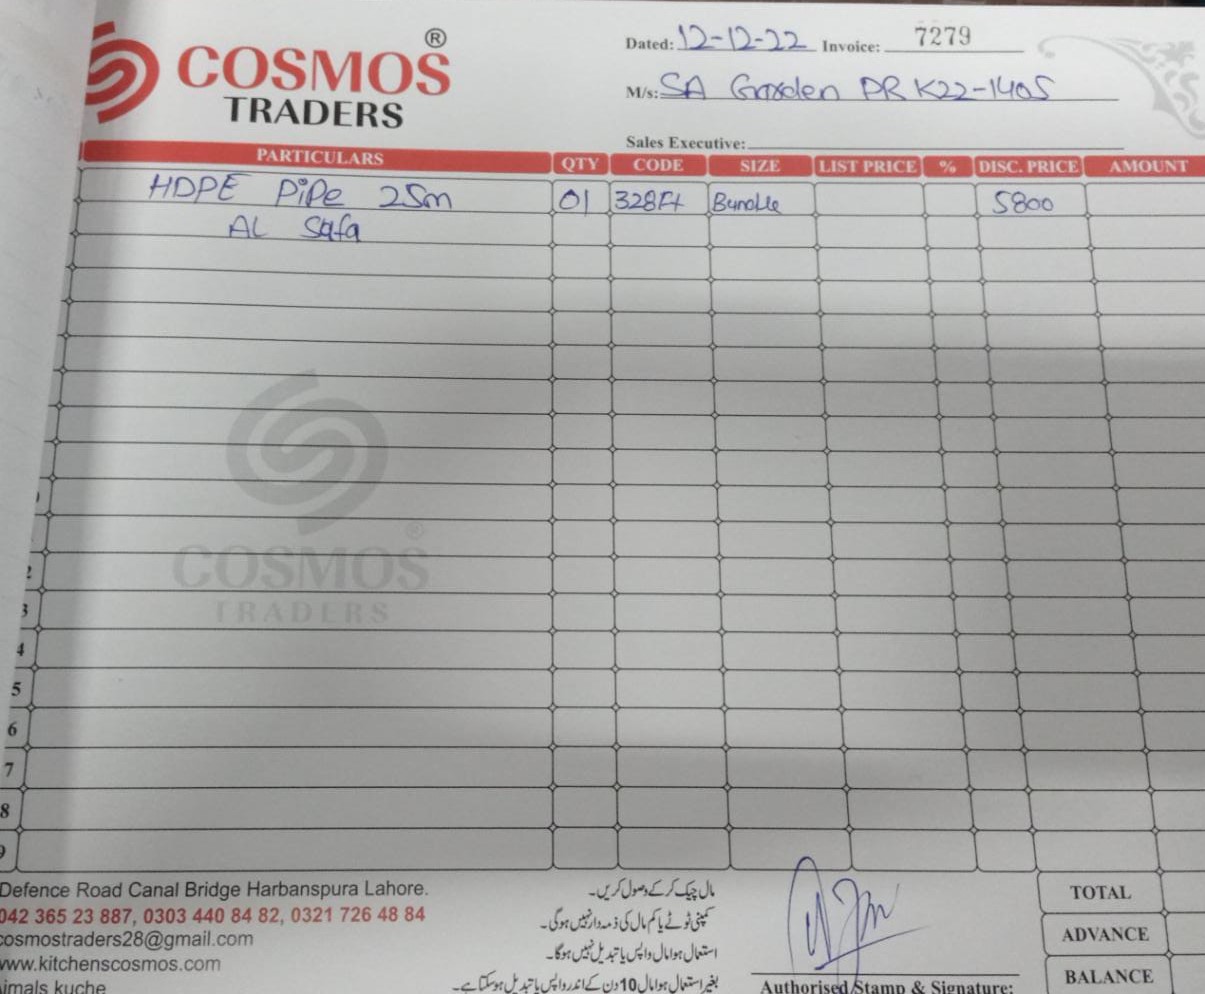 COSMOS ®
TRADERS
Dated: 12-12-22 Invoice: 7279
M/s: SA Garden PRK22-1405
Sales Executive:
PARTICULARS QTY CODE SIZE LIST PRICE % DISC. PRICE AMOUNT
HDPE PiPe 25m 01 328Ft Bundle 5800
AL Safa
COSMOS ®
TRADERS
2
3
4
5
6
7
8
9
Defence Road Canal Bridge Harbanspura Lahore.
042 365 23 887, 0303 440 84 82, 0321 726 48 84
cosmostraders28@gmail.com
www.kitchenscosmos.com
kuche
مال چیک کر کے وصول کریں۔
کمپنی ٹوٹے یا کم مال کی ذمہ دار نہیں ہوگی۔
استعمال ہوا مال واپس یا تبدیل نہیں ہوگا۔
بغیر استعمال ہوا مال 10 دن کے اندر واپس یا تبدیل ہوسکتا ہے۔
Authorised Stamp & Signature:
TOTAL
ADVANCE
BALANCE